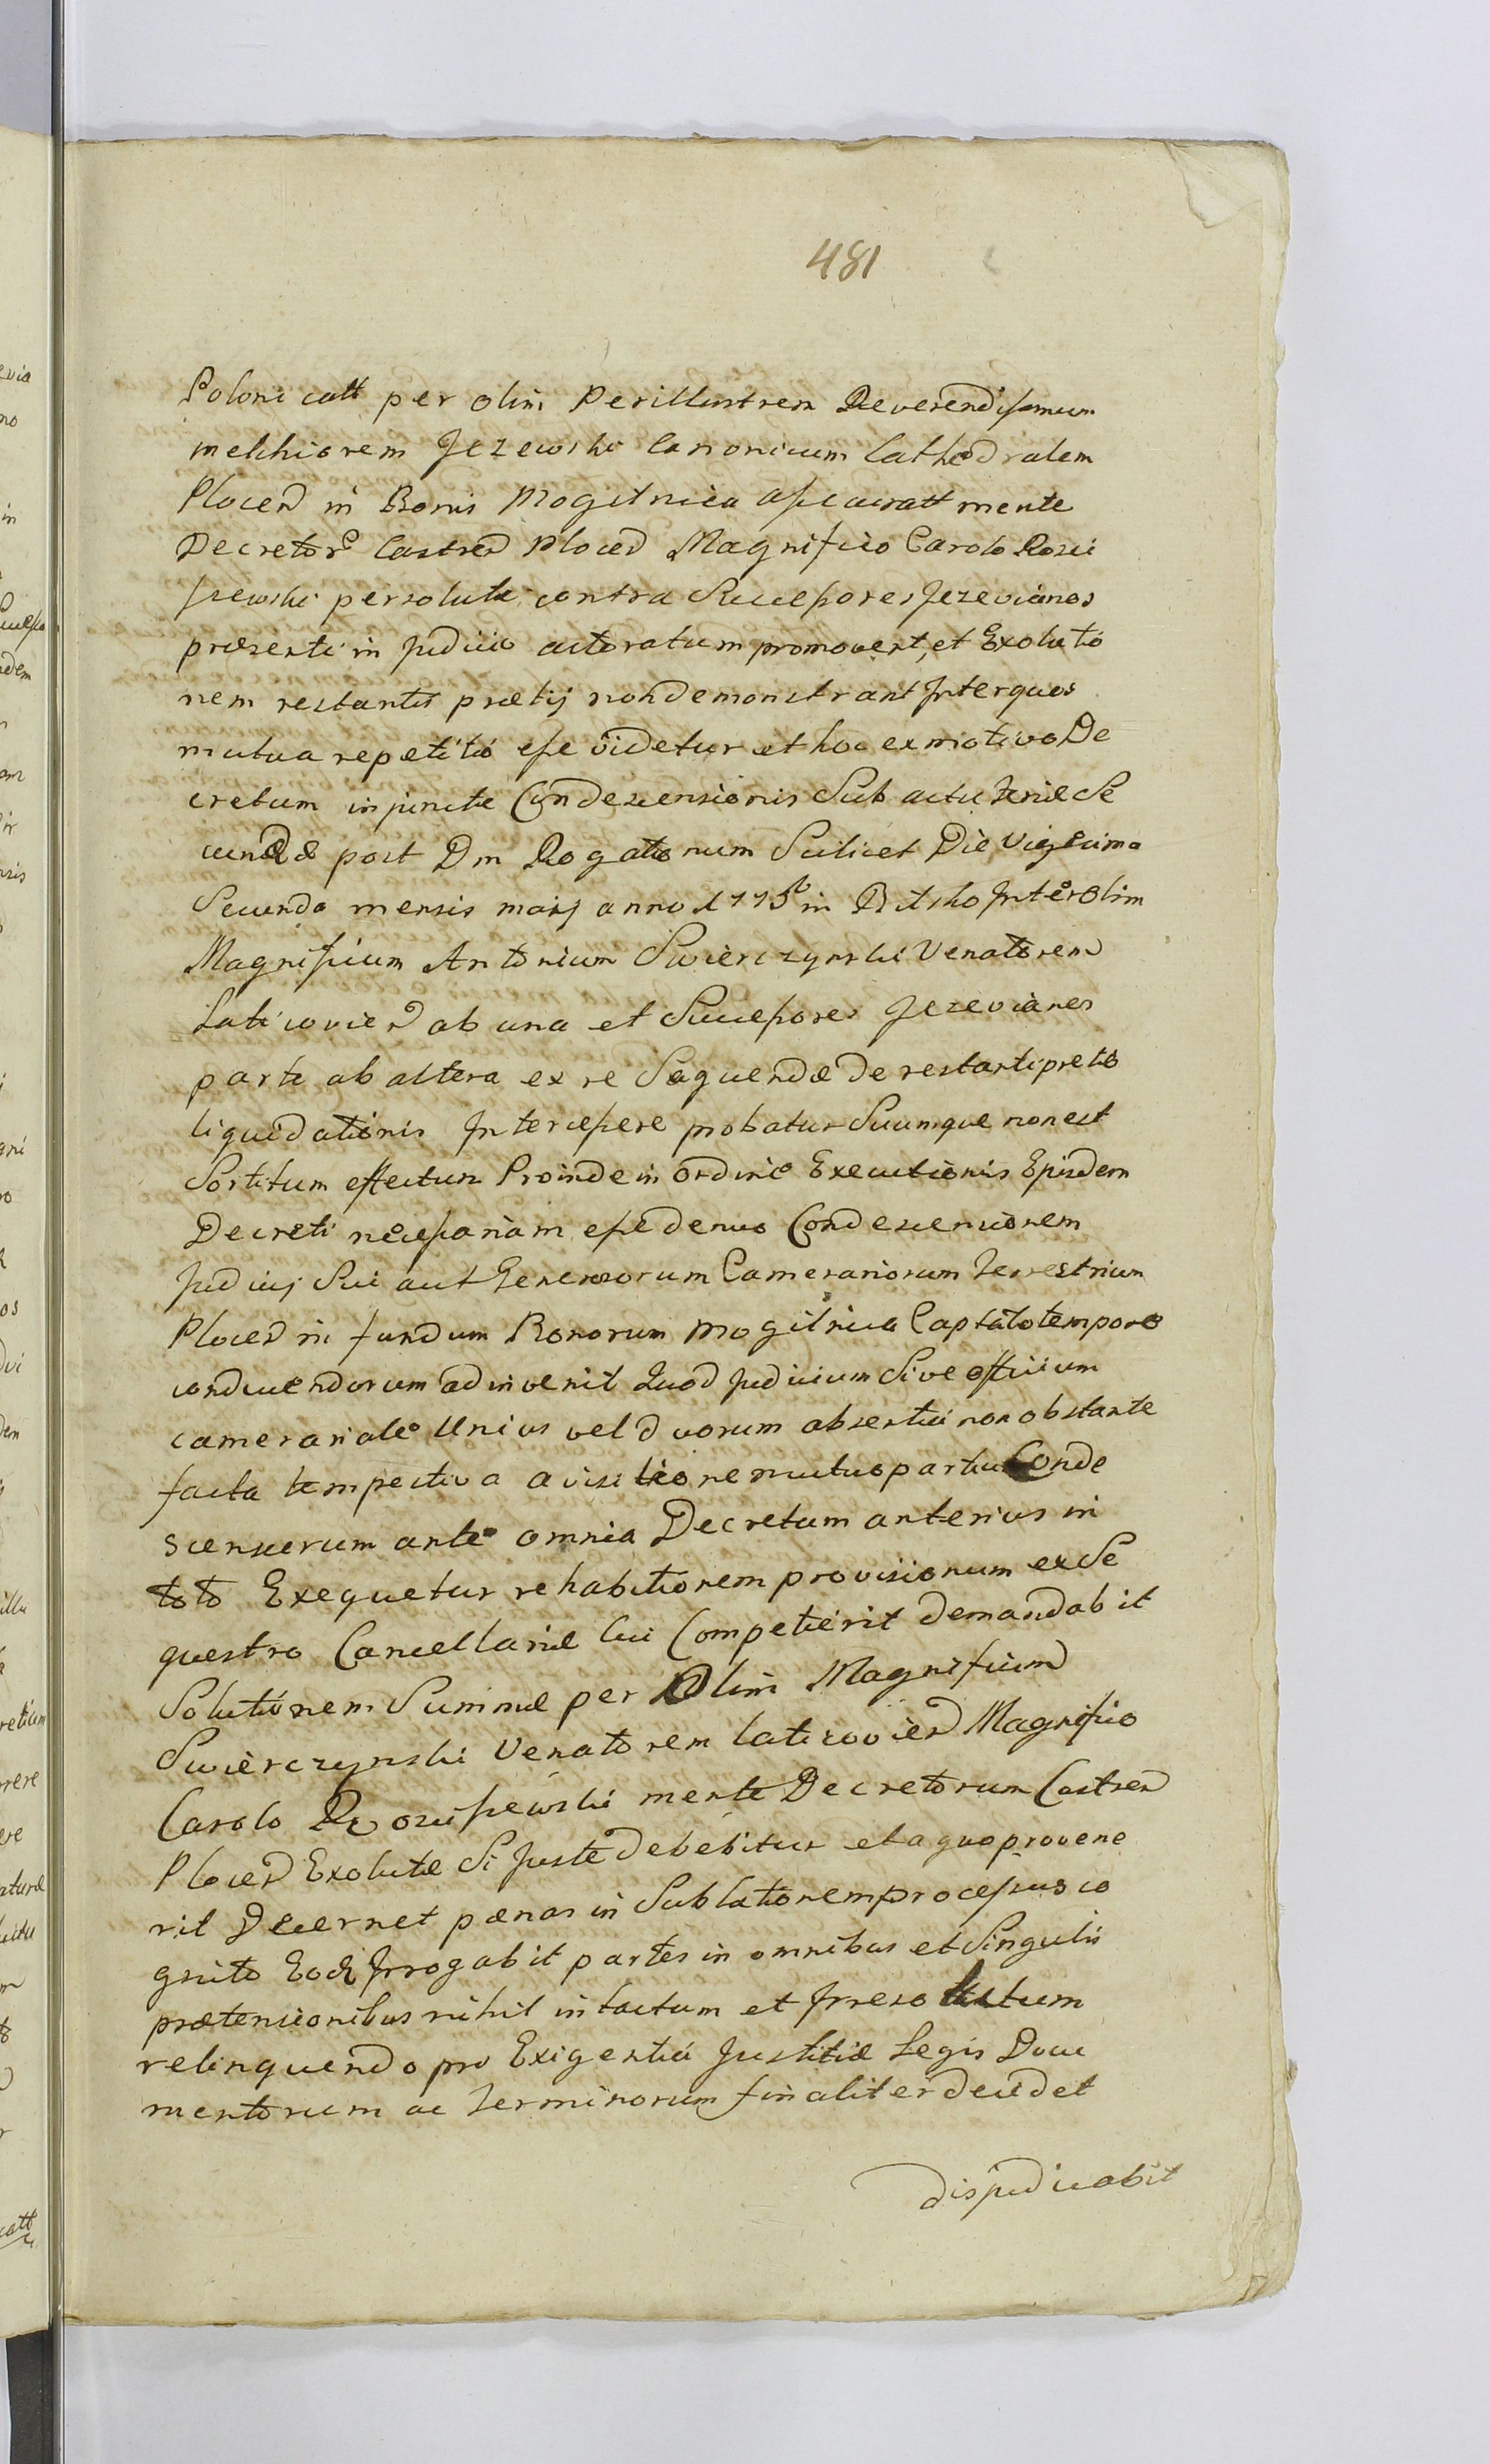 481
Polonicatt per olim Perillustrem Reverendissimum
melchiorem Jezewski Canonicum Cathedralem
Plocen in Bonis Mogilnica assecuratt mente
Decretor Castren Plocen Magnifico Carolo Rosci
szewski persolutae contra Successores Jezevianos
praesenti in Judicio actoratum promovent, et Exolutio
nem restantis praetij non demonstrant Inter quos
mutua repetitio esse videtur et hoc ex motivo De
cretum injunctae Condescensionis Sub actu Feriae Se
cundae post Dm Rogationum Scilicet Die Vigesima
Secunda mensis maij anno in Bielsko Inter Olim
Magnificum Antonium Swierczynski Venatorem
Laticovien ab una et Successores Jezevianos
parte ab altera ex re Sequendae de restanti pretio
liquidationis Intercessere probatur Suumque non est
Sortitum effectum Proinde in ordine Executionis Ejusdem
Decreti necessariam esse denuo Condescensionem
Judicij Sui aut Generosorum Camerariorum Terrestrium
Plocen in fundum Bonorum Mogilnica Captato tempore
conducendorum adinvenit Quod Judicium Sive officium
camerariale Unius vel duorum absentia non obstante
facta tempestiva avisitione mutuo partium Conde
scensurum ante omnia Decretum anterius in
toto Exequetur rehabitionem provisionum ex Se
questro Cancellariae Cui Competierit demandabit
Solutionem Summae per Olim Magnificum
Swierczynski Venatorem laticovien Magnifico
Carolo Rosciszewski mente Decretorum Castren
Plocen Exolutae Si Juste debebitur et a quo provene
rit Decernet paenas in Sublationem processus co
gnito Eodem Irrogabit partes in omnibus et Singulis
praetensionibus nihil intactum et Irresolutum
relinquendo pro Exigentia Justitiae Legis Docu
mentorum ac Terminorum finaliter decidet
disjudicabit